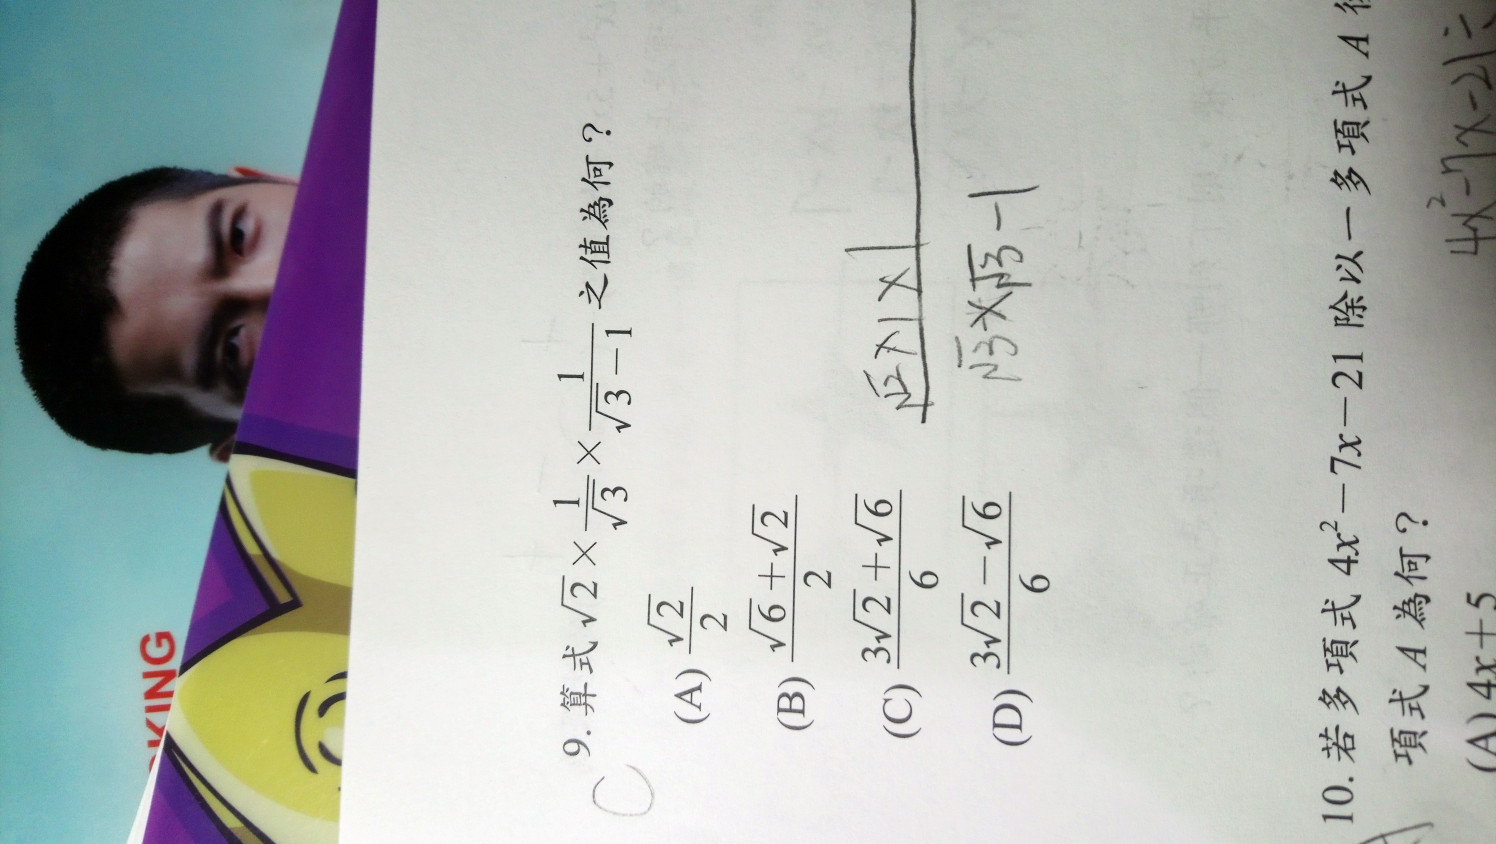 KING
C
9. 算式 √2 × 1/√3 × 1/(√3－1) 之值為何？
(A) √2/2
(B) (√6＋√2)/2
(C) (3√2＋√6)/6
(D) (3√2－√6)/6
√2×1×1
√3×√3－1
10. 若多項式 4x²－7x－21 除以一多項式 A
項式 A 為何？
4x²－7x－21÷
(A) 4x＋5